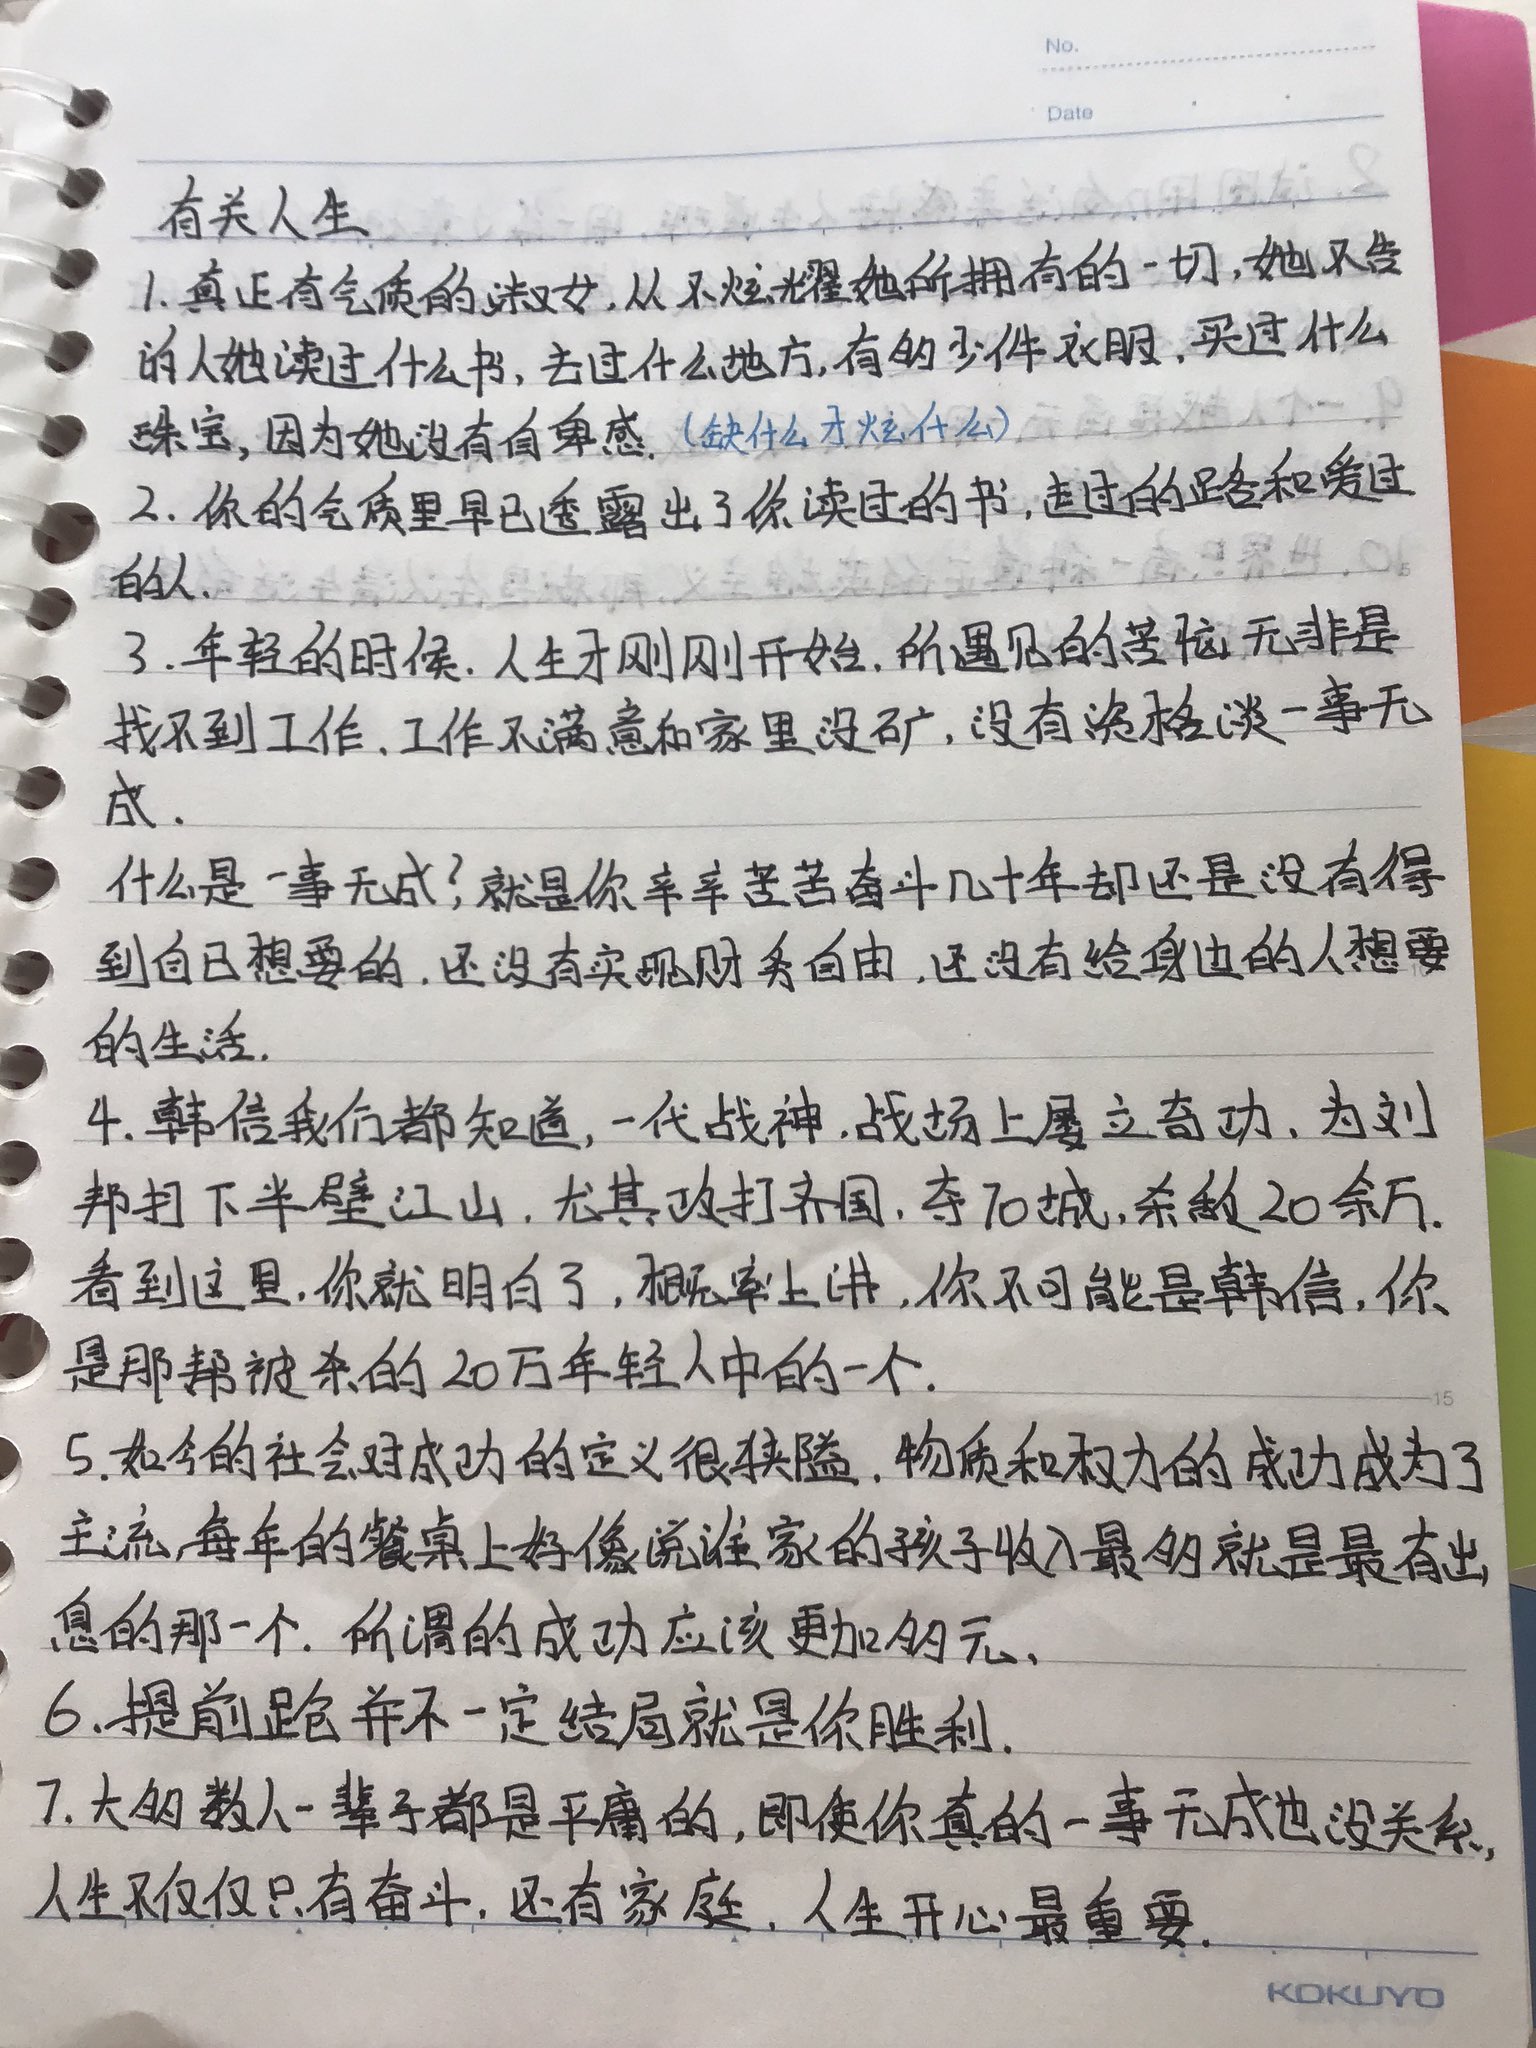 No.
Date
有关人生
1. 真正有气质的淑女,从不炫耀她所拥有的一切,她不告
的人她读过什么书,去过什么地方,有多少件衣服,买过什么
珠宝,因为她没有自卑感.(缺什么才炫什么)
2. 你的气质里早已透露出了你读过的书,走过的路和爱过
的人.
3. 年轻的时候.人生才刚刚开始.所遇见的苦恼无非是
找不到工作.工作不满意和家里没矿,没有资格谈一事无
成.
什么是一事无成?就是你辛辛苦苦奋斗几十年却还是没有得
到自已想要的.还没有实现财务自由.还没有给身边的人想要
的生活.
4. 韩信我们都知道,一代战神.战场上屡立奇功.为刘
邦打下半壁江山.尤其攻打齐国.夺70城,杀敌20余万.
看到这里.你就明白了,概率上讲,你不可能是韩信,你
是那帮被杀的20万年轻人中的一个.
15
5. 如今的社会对成功的定义很狭隘.物质和权力的成功成为了
主流,每年的餐桌上好像说谁家的孩子收入最多就是最有出
息的那一个.所谓的成功应该更加多元、
6. 提前跑并不一定结局就是你胜利.
7. 大多数人一辈子都是平庸的,即使你真的一事无成也没关系,
人生不仅仅只有奋斗.还有家庭.人生开心最重要.
KOKUYO